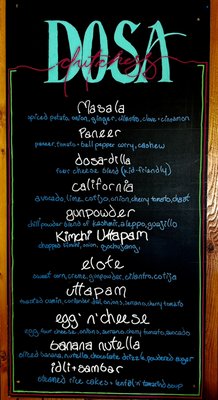 DOSA
kitchen
Masala
spiced potato, onion, ginger, cilantro, clove + cinnamon
Paneer
paneer, tomato + bell pepper curry, cashew
dosa-dilla
four cheese blend (kid-friendly)
california
avocado, lime, cotija, onion, cherry tomato, chaat
gunpowder
chili powder blend of kashmir, aleppo, guajillo
Kimchi Uttapam
chopped kimchi, onion, gochujang
elote
sweet corn, crema, gunpowder, cilantro, cotija
Uttapam
roasted cumin, coriander, onion, serrano, cherry tomato
egg n' cheese
egg, four cheese, onion, serrano, cherry tomato, avocado
banana nutella
sliced banana, nutella, chocolate drizzle, powdered sugar
idli + sambar
steamed rice cakes + lentil n' tomato soup